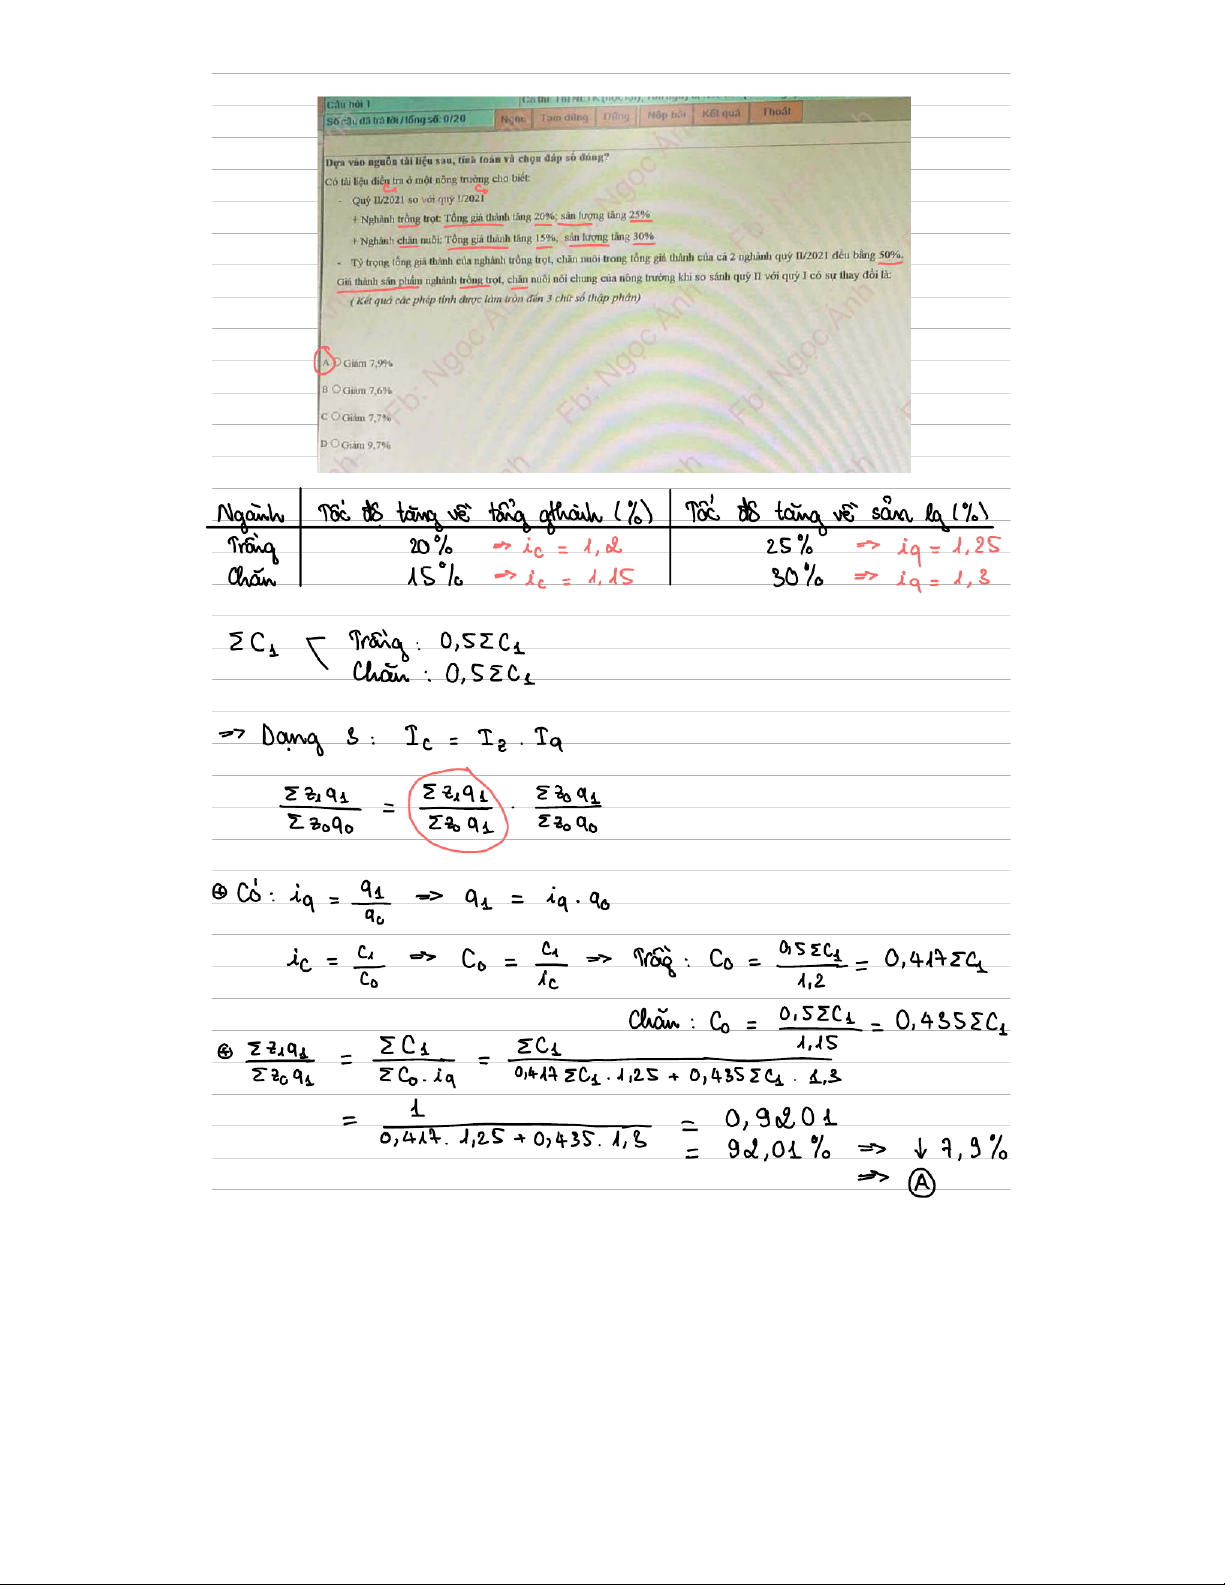 Câu hỏi 1
Số câu đã trả lời / tổng số: 0/20 Ngọc Tạm dừng Dừng Nộp bài Kết quả Thoát
Dựa vào nguồn tài liệu sau, tính toán và chọn đáp số đúng?
Có tài liệu điều tra ở một nông trường cho biết:
C₁ C₀
- Quý II/2021 so với quý I/2021
+ Nghành trồng trọt: Tổng giá thành tăng 20%; sản lượng tăng 25%
+ Nghành chăn nuôi: Tổng giá thành tăng 15%, sản lượng tăng 30%
- Tỷ trọng tổng giá thành của nghành trồng trọt, chăn nuôi trong tổng giá thành của cả 2 nghành quý II/2021 đều bằng 50%.
Giá thành sản phẩm nghành trồng trọt, chăn nuôi nói chung của nông trường khi so sánh quý II với quý I có sự thay đổi là:
( Kết quả các phép tính được làm tròn đến 3 chữ số thập phân)
A Giảm 7,9%
B Giảm 7,6%
C Giảm 7,7%
D Giảm 9,7%
Fb: Ngọc Anh
Ngành Tốc độ tăng về tổng gthành (%) Tốc độ tăng về sản lg (%)
Trồng 20% => ic = 1,2 25% => iq = 1,25
Chăn 15% => ic = 1,15 30% => iq = 1,3
ΣC₁ Trồng : 0,5ΣC₁
Chăn : 0,5ΣC₁
=> Dạng 3 : Ic = Iz . Iq
Σz₁q₁ / Σz₀q₀ = Σz₁q₁ / Σz₀q₁ . Σz₀q₁ / Σz₀q₀
⊕ Có : iq = q₁ / q₀ => q₁ = iq . q₀
ic = C₁ / C₀ => C₀ = C₁ / ic => Trồng : C₀ = 0,5ΣC₁ / 1,2 = 0,417ΣC₁
Chăn : C₀ = 0,5ΣC₁ / 1,15 = 0,435ΣC₁
⊕ Σz₁q₁ / Σz₀q₁ = ΣC₁ / ΣC₀ . iq = ΣC₁ / 0,417ΣC₁ . 1,25 + 0,435ΣC₁ . 1,3
= 1 / 0,417 . 1,25 + 0,435 . 1,3 = 0,9201
= 92,01% => ↓ 7,9%
=> A